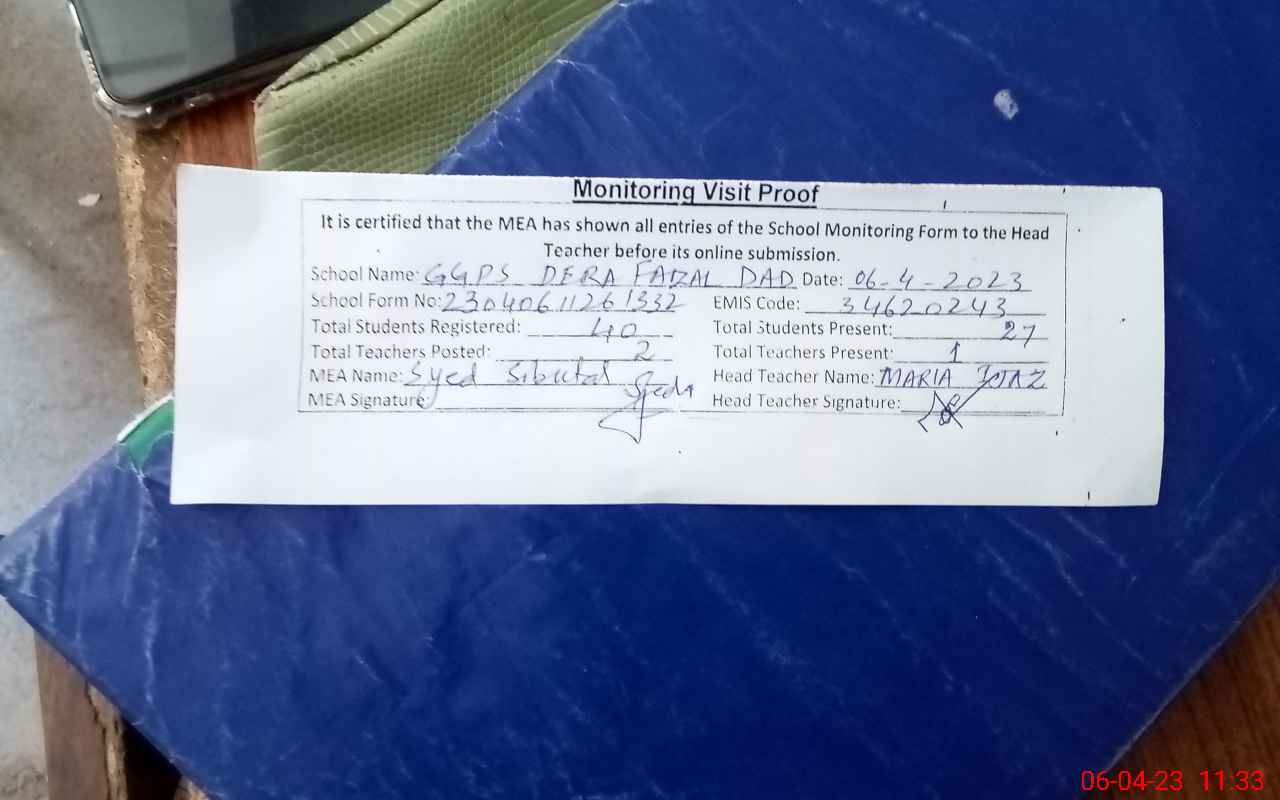 Monitoring Visit Proof
It is certified that the MEA has shown all entries of the School Monitoring Form to the Head
Teacher before its online submission.
School Name: GGPS DERA FAZAL DAD Date: 06-4-2023
School Form No: 23040611261332 EMIS Code: 34620243
Total Students Registered: 40 Total Students Present: 27
Total Teachers Posted: 2 Total Teachers Present: 1
MEA Name: Syed Head Teacher Name: MARIA
MEA Signature: Head Teacher Signature:
06-04-23 11:33